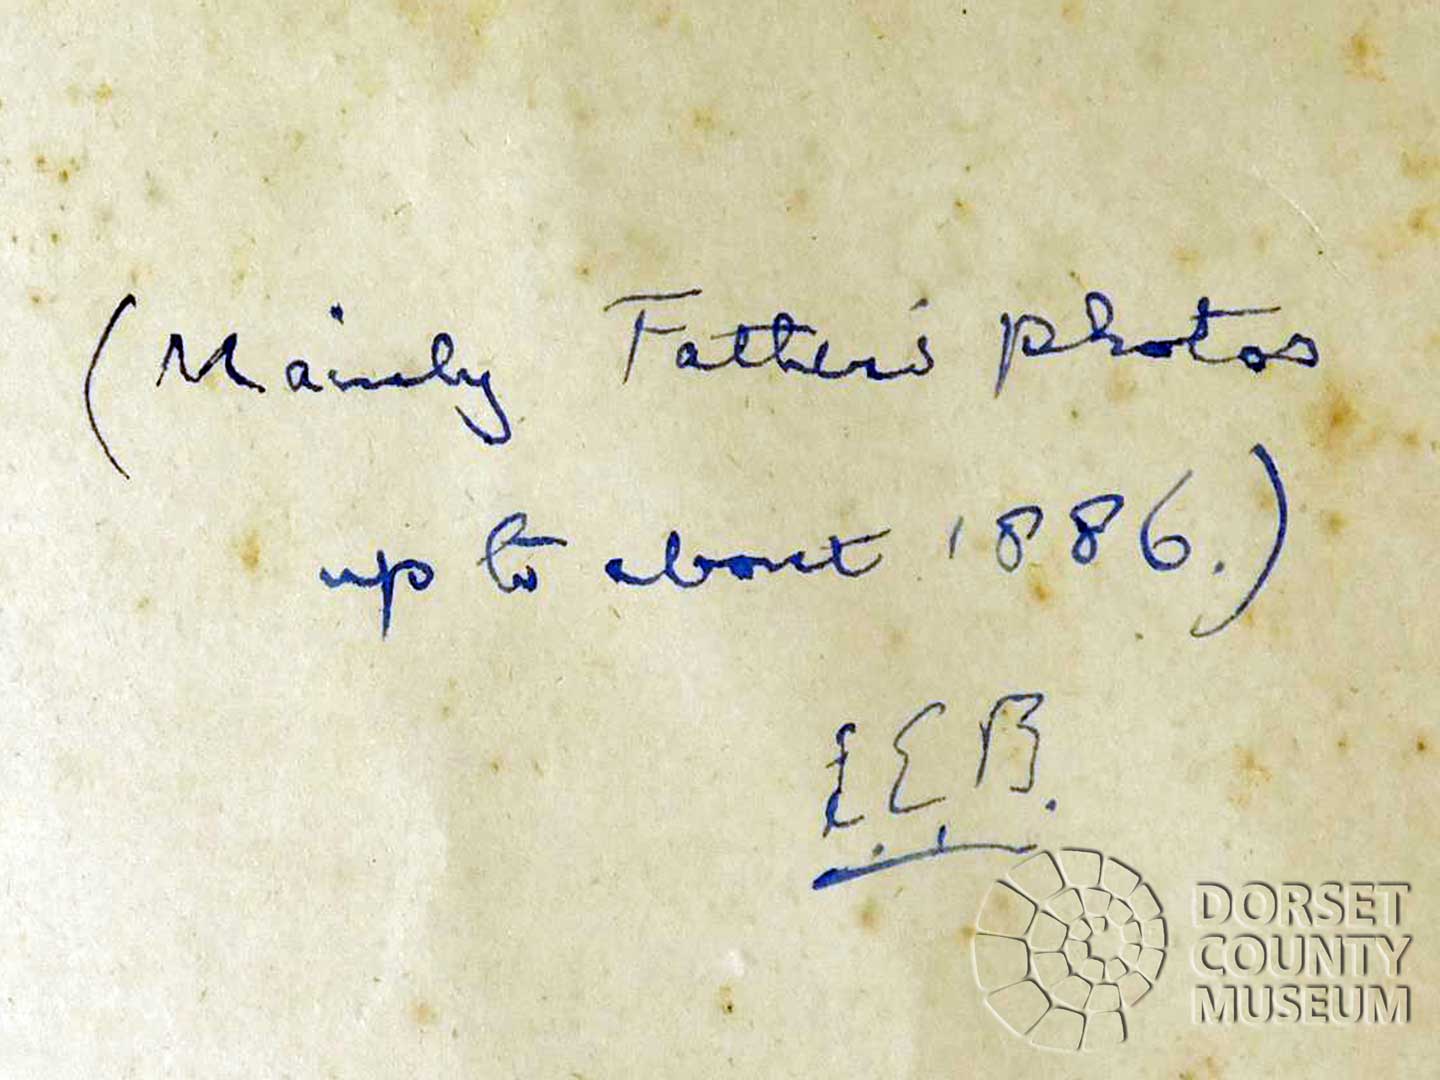 (Mainly Father's photos
up to about 1886.)
E.E.B.
DORSET
COUNTY
MUSEUM